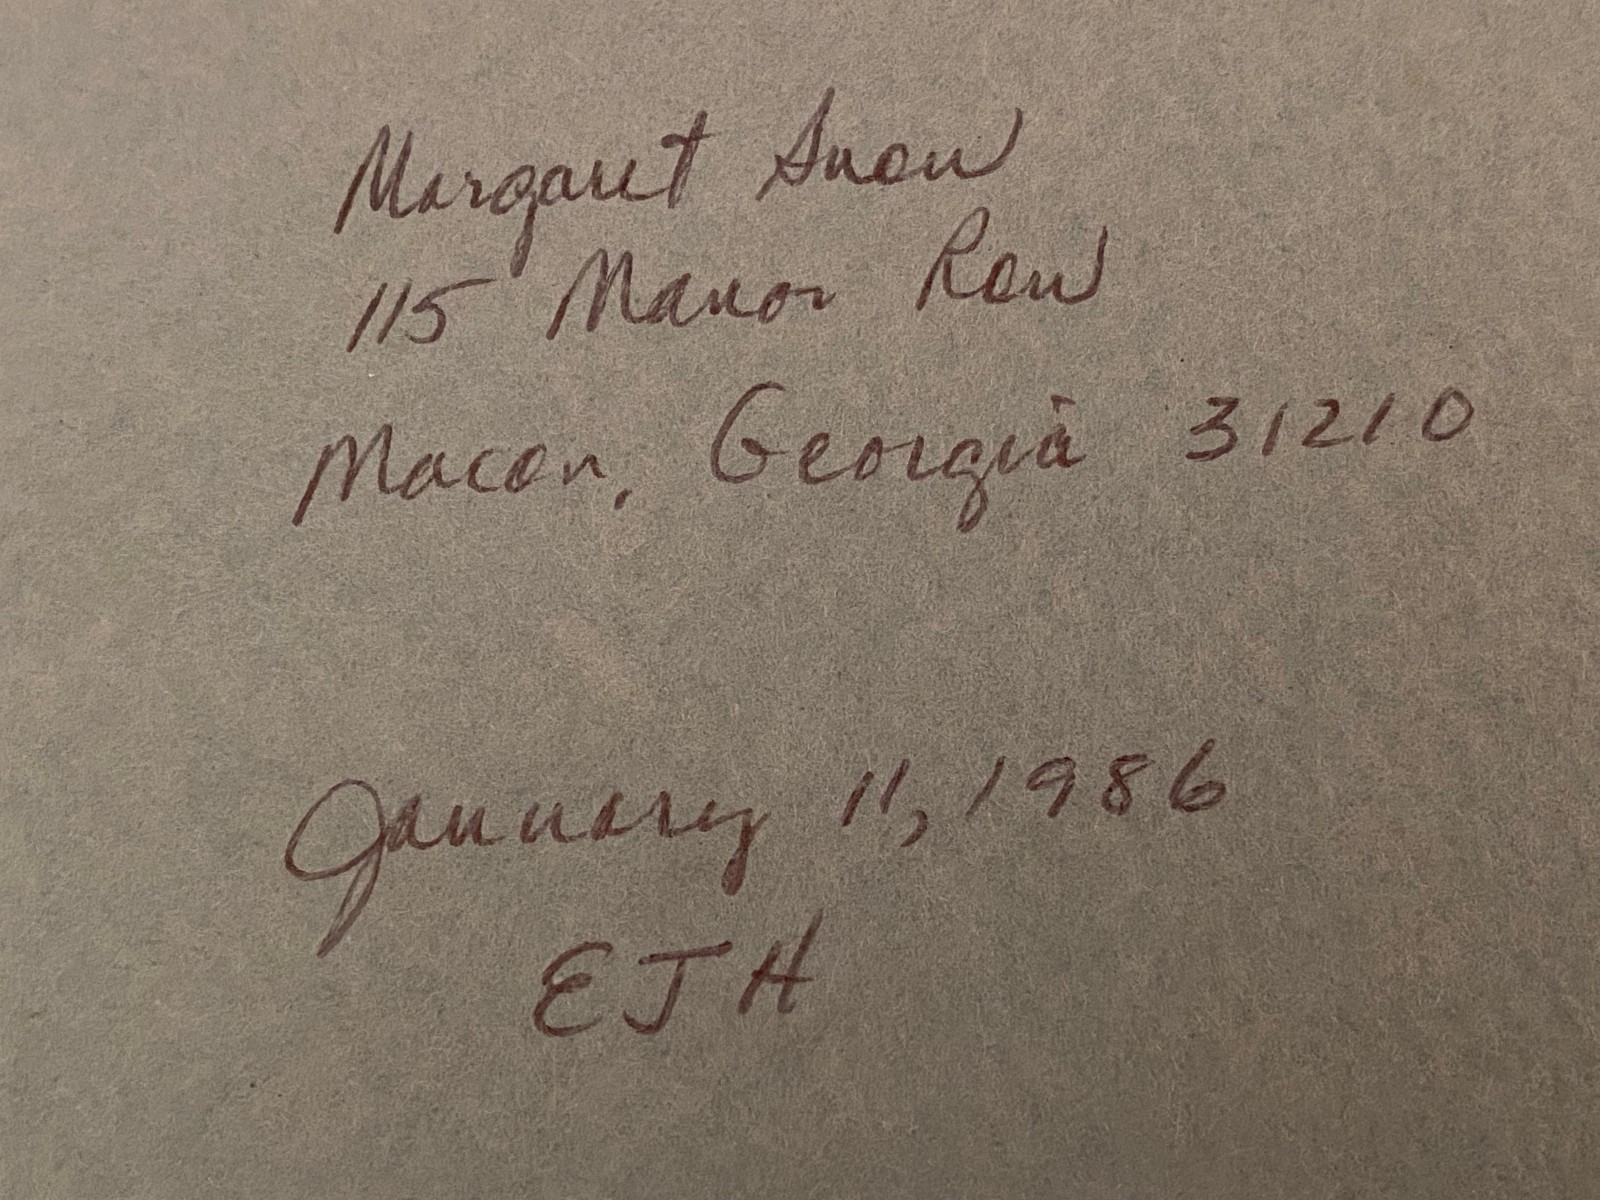 Margaret Snow
115 Manor Row
Macon, Georgia 31210
January 11, 1986
EJH